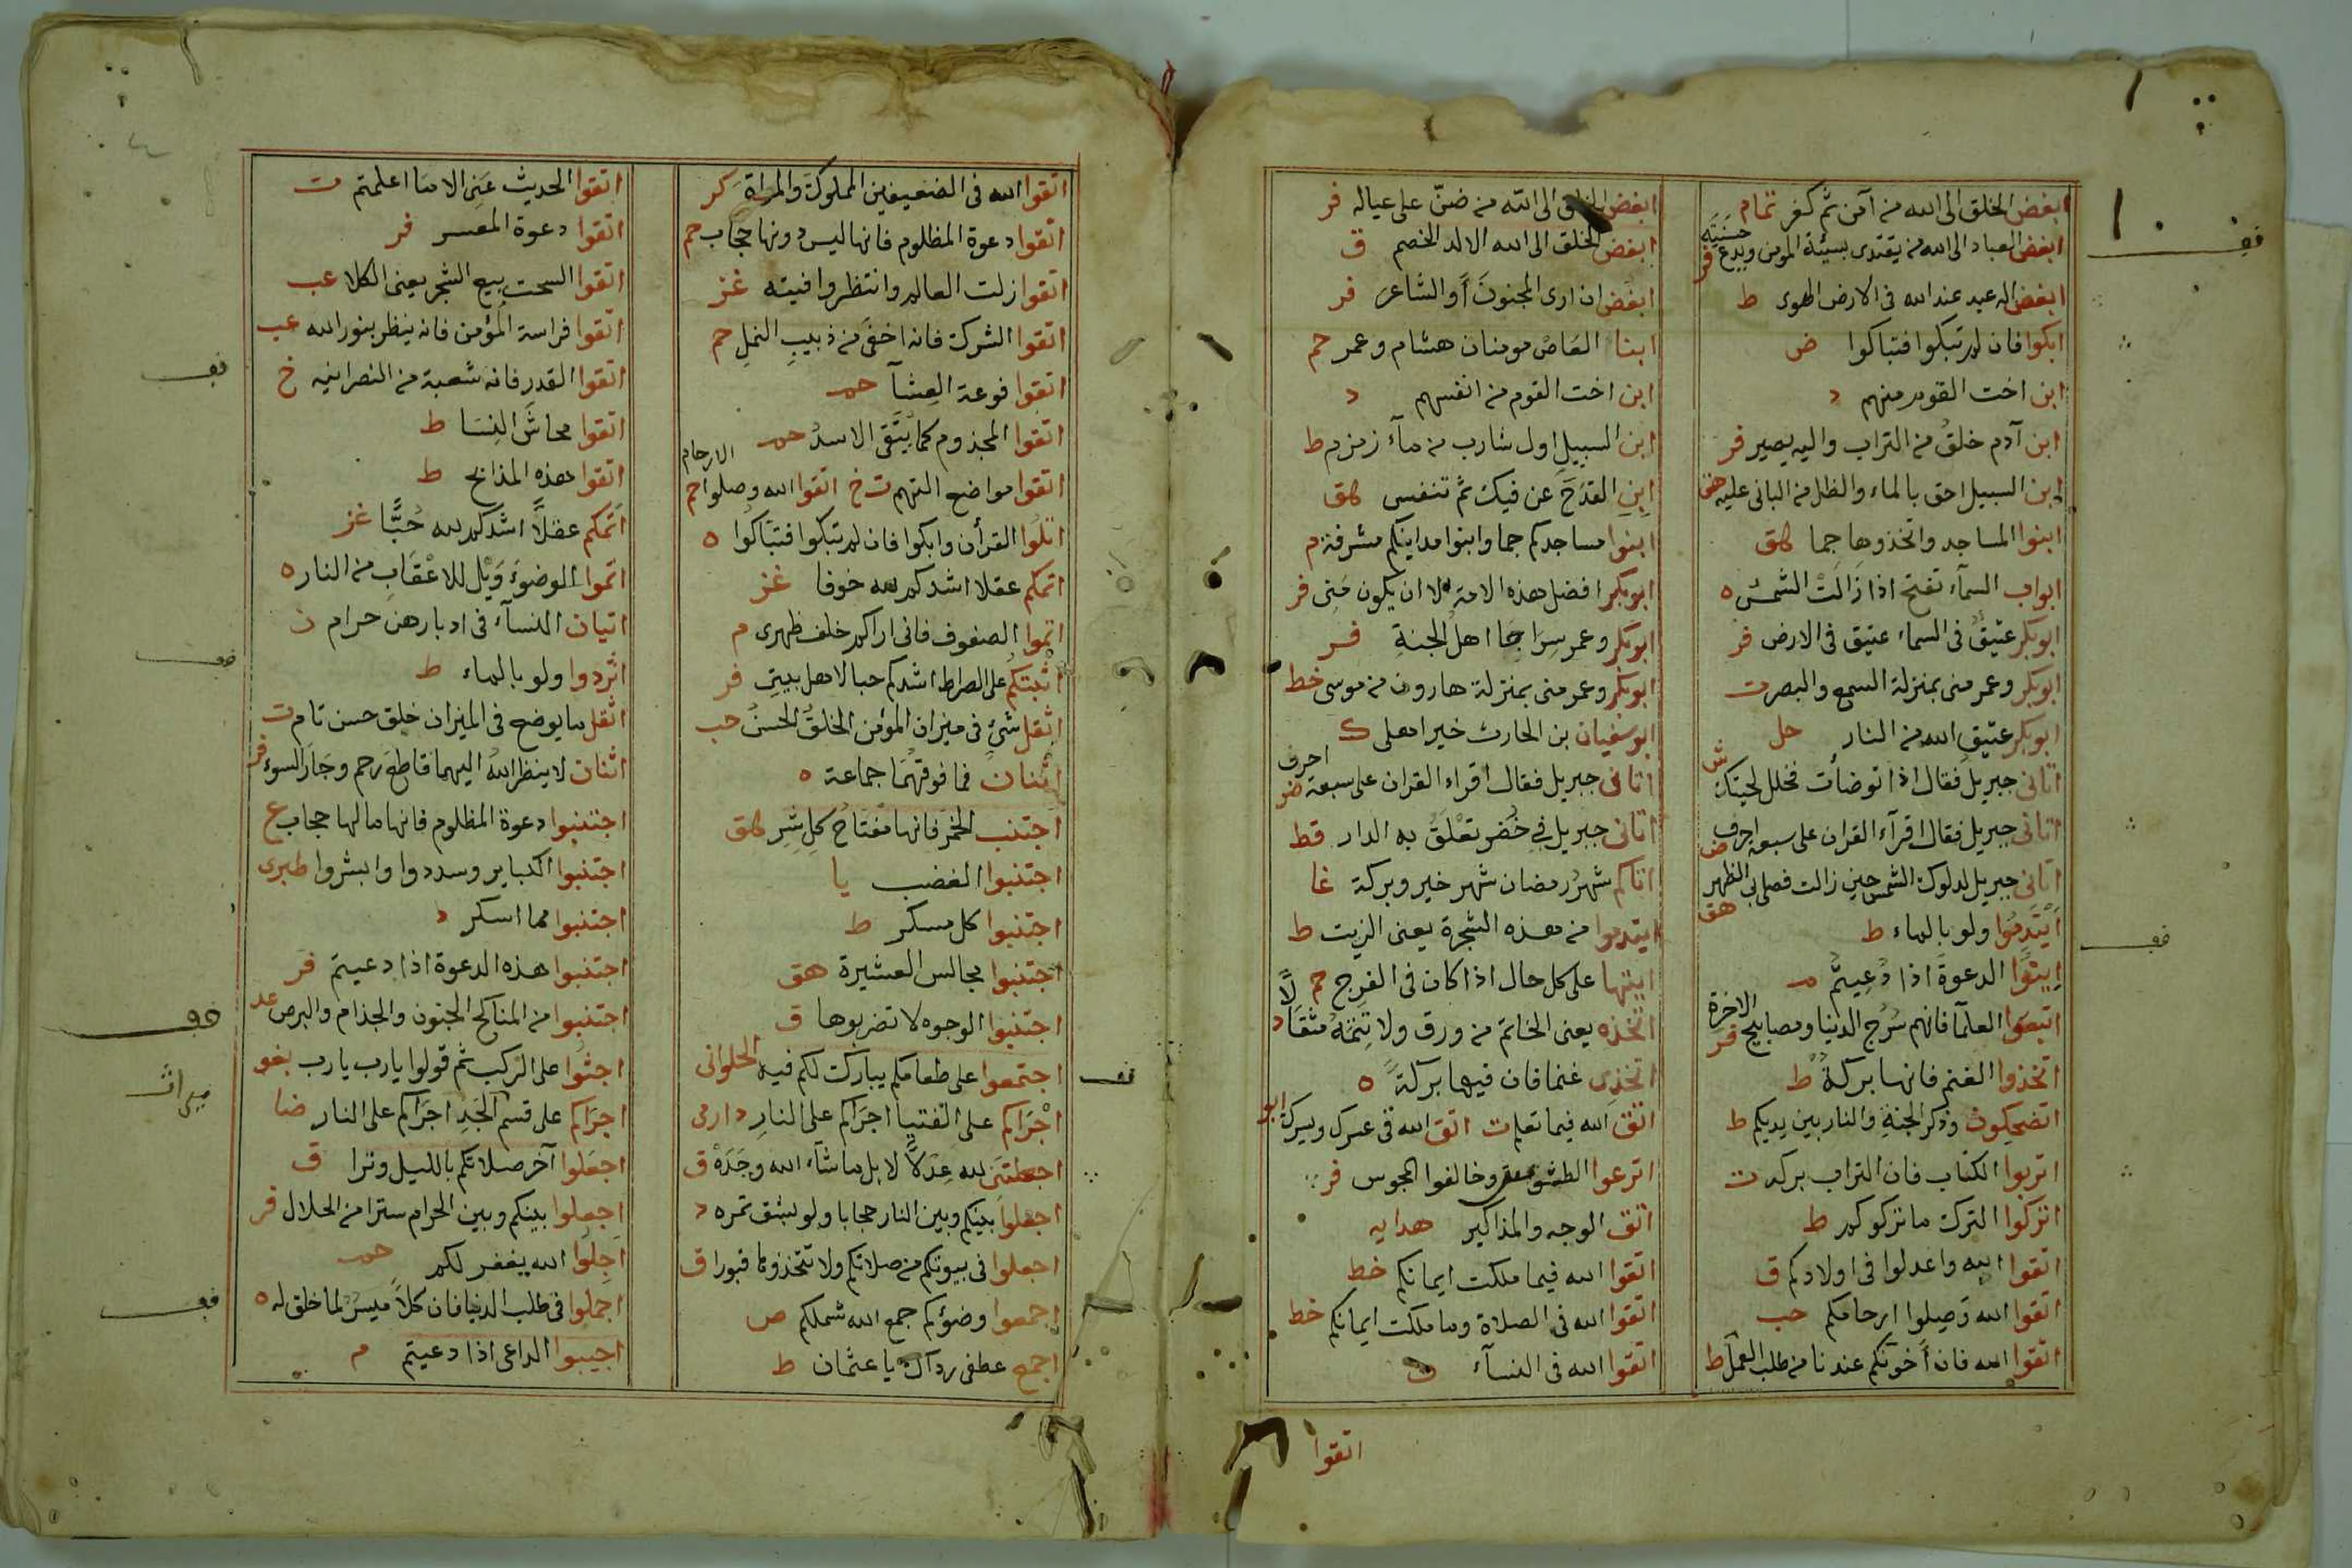 ابغض الخلق الى الله من آمن ثم كفر تمام
ابغض العباد الى الله من يقتدى بسيئة المومن ويدع حسنته فر
ابغض اله عبد عند الله فى الارض الهوى ط
ابكوا فان لم تبكوا فتباكوا ض
ابن اخت القوم منهم د
ابن آدم خلق من التراب واليه يصير فر
ابن السبيل احق بالماء والظل من البانى عليه
ابنوا المساجد واتخذوها جما هق
ابواب السمآء تفتح اذا زالت الشمس ه
ابوبكر عتيق فى السماء عتيق فى الارض فر
ابوبكر وعمر منى بمنزلة السمع والبصر ت
ابوبكر عتيق الله من النار حل
اتانى جبريل فقال اذا توضأت فخلل لحيتك ش
اتانى جبريل فقال اقرآء القران على سبعه احرف
اتانى جبريل لدلوك الشمس حين زالت فصلى بى الظهر هق
ايتدموا ولو بالماء ط
ايتوا الدعوة اذا دعيتم م
اتبعوا العلمآ فانهم سرج الدنيا ومصابيح الاخرة فر
اتخذوا الغنم فانها بركة ط
اتضحكون وذكر الجنة والنار بين يديكم ط
اتربوا الكتاب فان التراب بركة ت
اتركوا الترك ما تركوكم ط
اتقوا الله واعدلوا فى اولادكم ق
اتقوا الله وصلوا ارحامكم حب
اتقوا الله فان أخونكم عندنا من طلب العمل ط
ابغض الخلق الى الله من ضن على عياله فر
ابغض الخلق الى الله الالد الخصم ق
ابغض ان ارى المجنون أو الشاعر فر
ابنا العاص مومنان هشام وعمر حم
ابن اخت القوم من انفسهم د
ابن السبيل اول شارب من مآء زمزم ط
ابن القدح عن فيك ثم تنفس هق
ابنوا مساجدكم جما وابنوا مداينكم مشرفة م
ابوبكر افضل هذه الامة الا ان يكون منى فر
ابوبكر وعمر سراجا اهل الجنة فر
ابوبكر وعمر منى بمنزلة هارون من موسى خط
ابو سفيان بن الحارث خير اهلى ك
اتانى جبريل فقال اقراء القران على سبعة احرف
اتانى جبريل فى خضر تعلق به الدار قط
اتاكم شهر رمضان شهر خير وبركة غا
ايتدموا من هذه الشجرة يعنى الزيت ط
ايتها على كل حال اذا كان فى الفرج حم
اتخذه يعنى الخاتم من ورق ولا تتمه مثقالا د
اتخذى غنما فان فيها بركة ه
اتق الله فيما تعلم ت اتق الله فى عسرك ويسرك ابو
اترعوا الطشوش وخالفوا المجوس فر
اتق الوجه والمذاكير هدايه
اتقوا الله فيما ملكت ايمانكم خط
اتقوا الله فى الصلاة وما ملكت ايمانكم خط
اتقوا الله فى النسآء
اتقوا
اتقوا الله فى الضعيفين المملوك والمراة كر
اتقوا دعوة المظلوم فانها ليس دونها حجاب حم
اتقوا زلت العالم وانتظروا فيته غز
اتقوا الشرك فانه اخفى من دبيب النمل حم
اتقوا فوعة العشآ حم
اتقوا المجذوم كما يتقى الاسد حم
اتقوا مواضع التهم ت خ اتقوا الله وصلوا الارحام حم
اتلوا القرأن وابكوا فان لم تبكوا فتباكوا ه
اتمكم عقلا اشدكم لله خوفا غز
اتموا الصفوف فانى اراكم خلف ظهرى م
اثبتكم على الصراط اشدكم حبا لاهل بيتى فر
اثقل شئ فى ميزان المؤمن الخلق الحسن حب
اثنان فما فوقهما جماعة ه
اجتنب الخمر فانها مفتاح كل شر هق
اجتنبوا الغضب يا
اجتنبوا كل مسكر ط
اجتنبوا مجالس العشيرة هق
اجتنبوا الوجوه لا تضربوها ق
اجتمعوا على طعامكم يبارك لكم فيه الحلوانى
اجراكم على الفتيا اجراكم على النار دارمى
اجعلتنى لله عدلا لا بل ما شآء الله وحده ق
اجعلوا بينكم وبين النار حجابا ولو بشق تمره د
اجعلوا فى بيوتكم من صلاتكم ولا تتخذوها قبورا ق
اجمعوا وضؤكم جمع الله شملكم ص
اجمع عطفى ردآك يا عثمان ط
اتقوا الحديث عنى الا ما اعلمتم ت
اتقوا دعوة المعسر فر
اتقوا السحت بيع الشجر يعنى الكلا عب
اتقوا فراسة المؤمن فانه ينظر بنور الله عب
اتقوا القدر فانه شعبة من النصرانيه خ
اتقوا محاش النسا ط
اتقوا هذه المذابح ط
أتمكم عقلا اشدكم لله حبا غز
اتموا الوضوء ويل للاعقاب من النار ه
اتيان النسآء فى ادبارهن حرام ن
اثردوا ولو بالماء ط
اثقل ما يوضع فى الميزان خلق حسن تام ت
اثنان لا ينظر الله اليهما قاطع رحم وجار السوء فر
اجتنبوا دعوة المظلوم فانها مالها حجاب ع
اجتنبوا الكباير وسددوا وابشروا طبرى
اجتنبوا مما اسكر د
اجتنبوا هذه الدعوة اذا دعيتم فر
اجتنبوا من المناكح الجنون والجذام والبرص عد
اجثوا على الركب ثم قولوا يارب يارب بغو
اجراكم على قسم الجد اجراكم على النار ضا
اجعلوا آخر صلاتكم بالليل وترا ق
اجعلوا بينكم وبين الحرام سترا من الحلال فر
اجلوا الله يغفر لكم حم
اجملوا فى طلب الدنيا فان كلا ميسر لما خلق له ه
اجيبوا الداعى اذا دعيتم م
ميراث